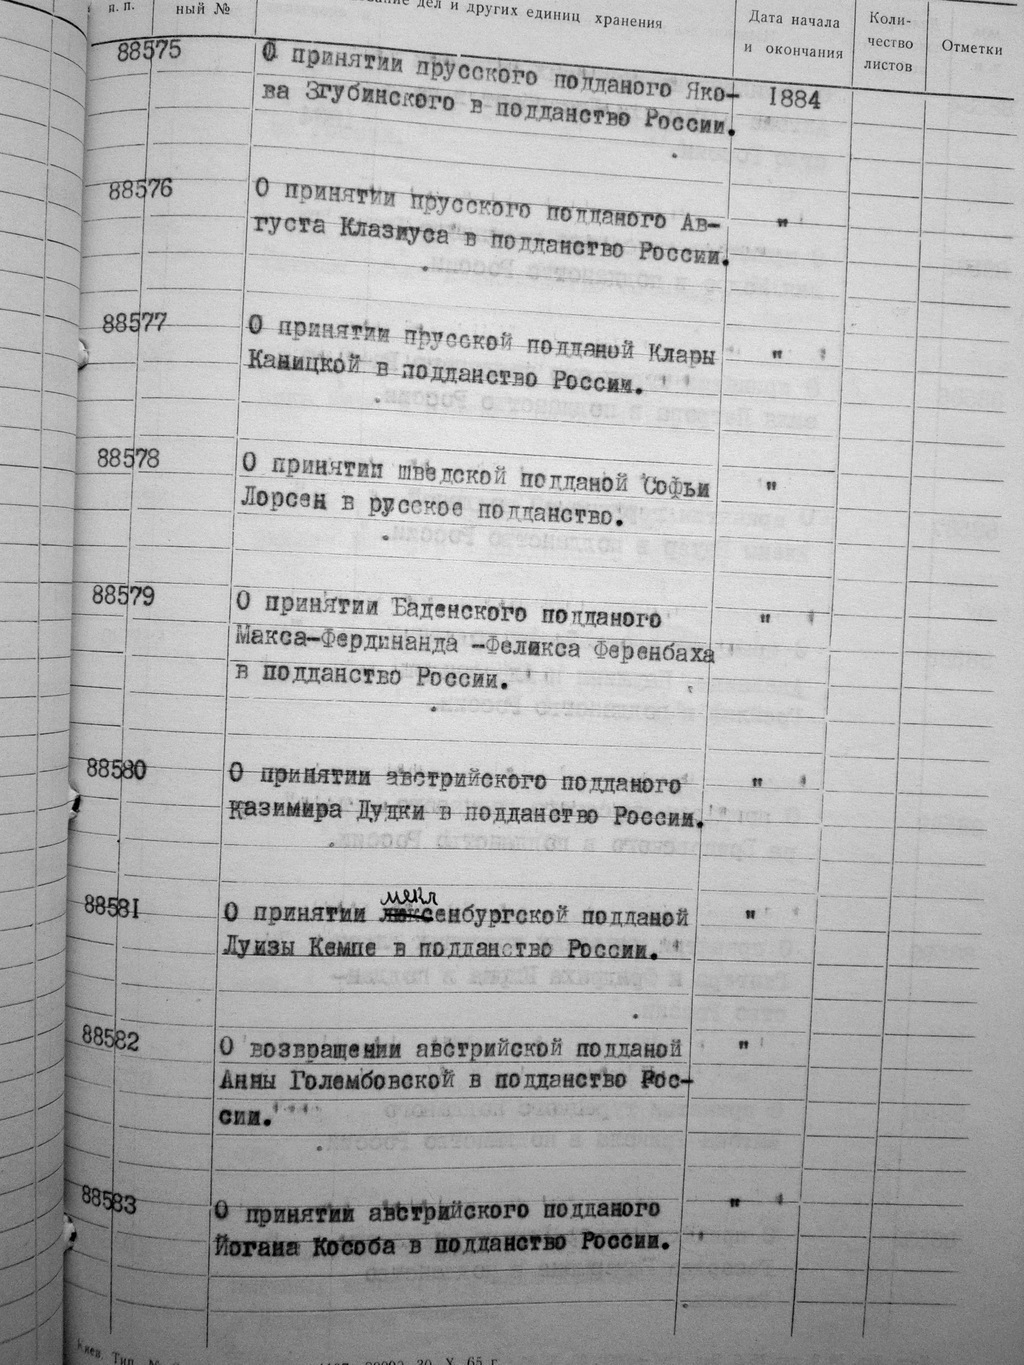 п. п.
ный №
дел и других единиц хранения
Дата начала
и окончания
Коли-
чество
листов
Отметки
88575
О принятии прусского подданого Яко-
ва Згубинского в подданство России.
1884
88576
О принятии прусского подданого Ав-
густа Клазиуса в подданство России.
"
88577
О принятии прусской подданой Клары
Каницкой в подданство России.
"
88578
О принятии шведской подданой Софьи
Лорсен в русское подданство.
"
88579
О принятии Баденского подданого
Макса-Фердинанда -Феликса Ференбаха
в подданство России.
"
88580
О принятии австрийского подданого
Казимира Дудки в подданство России.
"
88581
мекл
О принятии люксенбургской подданой
Луизы Кемпе в подданство России.
"
88582
О возвращении австрийской подданой
Анны Голембовской в подданство Рос-
сии.
"
88583
О принятии австрийского подданого
Йогана Кособа в подданство России.
"
Киев. Тип.
30. X. 65 г.